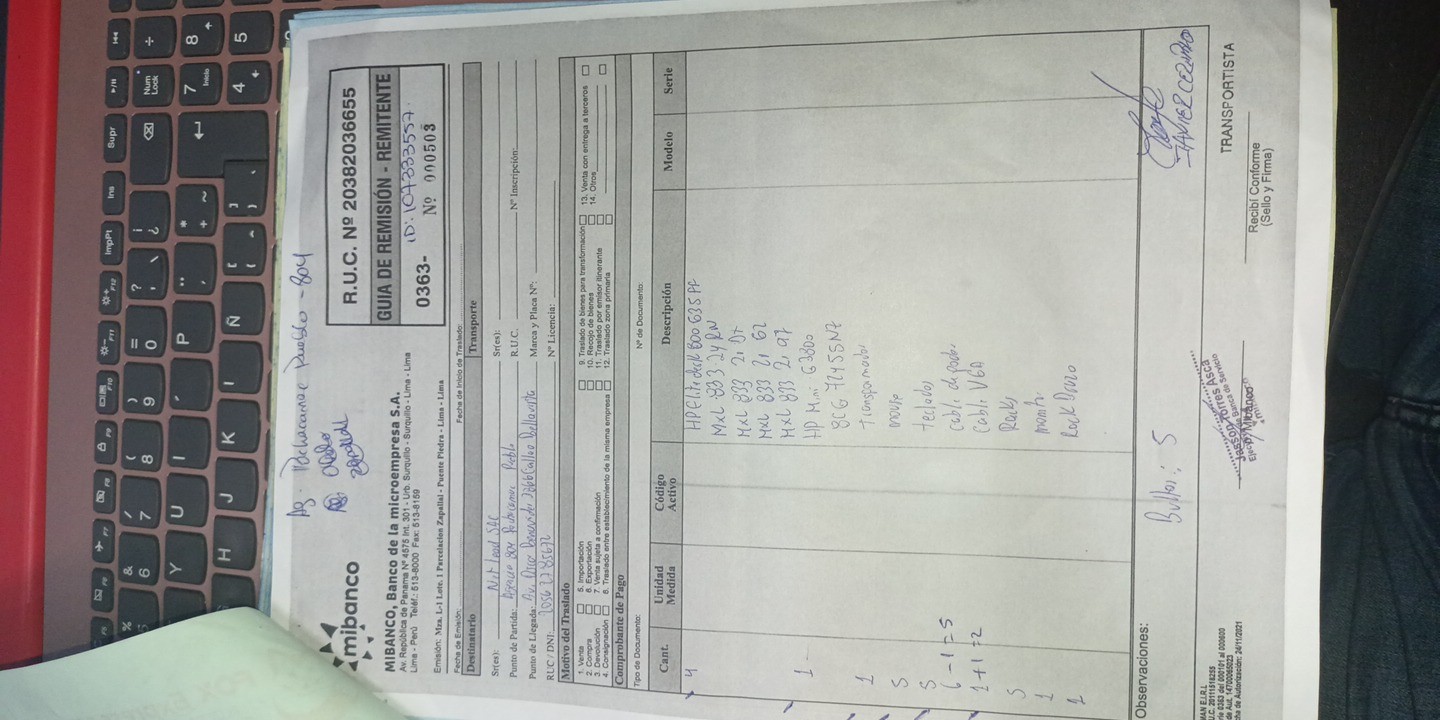 Ag. Pachacamac Pueblo - 804
mibanco
MIBANCO, Banco de la microempresa S.A.
Av. República de Panamá Nº 4575 Int. 301 - Urb. Surquillo - Surquillo - Lima - Lima
Lima - Perú Teléf.: 513-8000 Fax: 513-8159
Emisión: Mza. L-1 Lote. 1 Parcelacion Zapallal - Puente Piedra - Lima - Lima
R.U.C. Nº 20382036655
GUIA DE REMISIÓN - REMITENTE
ID: 107333557.
0363- Nº 000503
Fecha de Emisión: Fecha de Inicio de Traslado:
Destinatario Transporte
Sr(es): Net Lead SAC Sr(es):
Punto de Partida: Agencia 804 Pachacamac Pueblo R.U.C. Nº Inscripción:
Punto de Llegada: Av. Oscar Benavides 3866 Callao Bellavista Marca y Placa Nº:
RUC / DNI: Nº Licencia:
Motivo del Traslado
1. Venta 5. Importación 9. Traslado de bienes para transformación 13. Venta con entrega a terceros
2. Compra 6. Exportación 10. Recojo de bienes 14. Otros
3. Devolución 7. Venta sujeta a confirmación 11. Traslado por emisor itinerante
4. Consignación 8. Traslado entre establecimiento de la misma empresa 12. Traslado zona primaria
Comprobante de Pago
Tipo de Documento: Nº de Documento:
Cant. Unidad Medida Código Activo Descripción Modelo Serie
4 HP Elitedesk 800 G35FF
MXL 833 24RN
MXL 833 21
MXL 833 21 62
MXL 833 21 97
1 HP Mini G3800
8CG 7245
1
5 mouse
5 teclados
6 - 1 = 5 cable de poder
1 + 1 = 2 Cable VGA
5
1 monitor
1
Observaciones: Bultos: 5
JAVIER
Jasson Torres Asca
de Banca de Servicio
P/ Mibanco
TRANSPORTISTA
Recibí Conforme
(Sello y Firma)
MAN E.I.R.L
U.C. 20111518255
rie 0363 del 000101 al 000600
de Aut. 1470085023
ha de Autorización: 24/11/2021